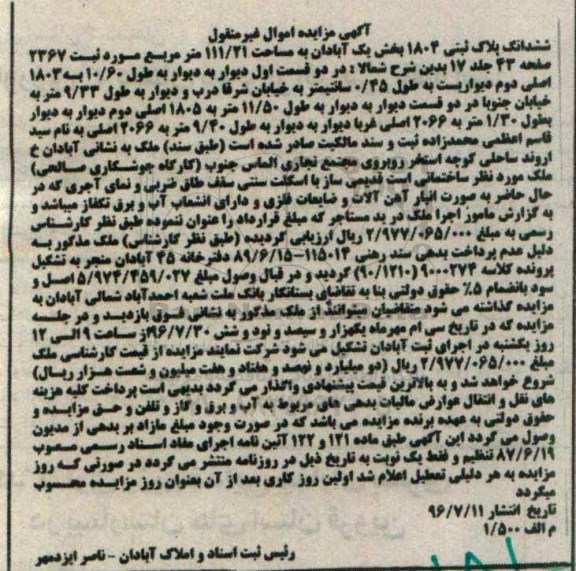 آگهی مزایده اموال غیرمنقول
ششدانگ پلاک ثبتی ۱۸۰۴ بخش یک آبادان به مساحت ۱۱۱/۲۱ متر مربع مورد ثبت ۲۳۶۷
صفحه ۴۳ جلد ۱۷ بدین شرح شمالا : در دو قسمت اول دیوار به دیوار به طول ۱۰/۶۰ به ۱۸۰۳
اصلی دوم دیواریست به طول ۰/۴۵ سانتیمتر به خیابان شرقا درب و دیوار به طول ۹/۳۳ متر به
خیابان جنوبا در دو قسمت دیوار به دیوار به طول ۱۱/۵۰ متر به ۱۸۰۵ اصلی دوم دیوار به دیوار
بطول ۱/۳۰ متر به ۲۰۶۶ اصلی غربا دیوار به دیوار به طول ۹/۴۰ متر به ۲۰۶۶ اصلی به نام سید
قاسم اعظمی محمدزاده ثبت و سند مالکیت صادر شده است (طبق سند) ملک به نشانی آبادان خ
اروند ساحلی کوچه استخر روبروی مجتمع تجاری الماس جنوب (کارگاه جوشکاری صالحی)
ملک مورد نظر ساختمانی است قدیمی ساز با اسکلت سنتی سقف طاق ضربی و نمای آجری که در
حال حاضر به صورت انبار آهن آلات و ضایعات فلزی و دارای انشعاب آب و برق تکفاز میباشد و
به گزارش مامور اجرا ملک در ید مستاجر که مبلغ قرارداد را عنوان ننموده طبق نظر کارشناس
رسمی به مبلغ ۲/۹۷۷/۰۶۵/۰۰۰ ریال ارزیابی گردیده (طبق نظر کارشناس) ملک مذکور به
دلیل عدم پرداخت بدهی سند رهنی ۱۱۵۰۱۴-۸۹/۶/۱۵ دفترخانه ۴۵ آبادان منجر به تشکیل
پرونده کلاسه ۹۰۰۰۲۷۴ (۹۰/۱۲۱۰) گردید و در قبال وصول مبلغ ۵/۹۷۴/۴۵۹/۰۲۷ اصل و
سود بانضمام ۵٪ حقوق دولتی بنا به تقاضای بستانکار بانک ملت شعبه احمدآباد شمالی آبادان به
مزایده گذاشته می شود متقاضیان میتوانند از ملک مذکور به نشانی فوق بازدید و در جلسه
مزایده که در تاریخ سی ام مهرماه یکهزار و سیصد و نود و شش ۹۶/۷/۳۰ از ساعت ۹ الی ۱۲
روز یکشنبه در اجرای ثبت آبادان تشکیل می شود شرکت نمایند مزایده از قیمت کارشناسی ملک
مبلغ ۲/۹۷۷/۰۶۵/۰۰۰ ریال (دو میلیارد و نهصد و هفتاد و هفت میلیون و شصت هزار ریال)
شروع خواهد شد و به بالاترین قیمت پیشنهادی واگذار می گردد بدیهی است پرداخت کلیه هزینه
های نقل و انتقال عوارض مالیات بدهی های مربوط به آب و برق و گاز و تلفن و حق مزایده و
حقوق دولتی به عهده برنده مزایده می باشد که در صورت وجود مبلغ مازاد بر بدهی از مدیون
وصول می گردد این آگهی طبق ماده ۱۲۱ و ۱۲۲ آئین نامه اجرای مفاد اسناد رسمی مصوب
۸۷/۶/۱۹ تنظیم و فقط یک نوبت به تاریخ ذیل در روزنامه منتشر می گردد در صورتی که روز
مزایده به هر دلیلی تعطیل اعلام شد اولین روز کاری بعد از آن بعنوان روز مزایده محسوب
میگردد
تاریخ انتشار ۹۶/۷/۱۱
م الف ۱/۵۰۰
رئیس ثبت اسناد و املاک آبادان - ناصر ایزدمهر